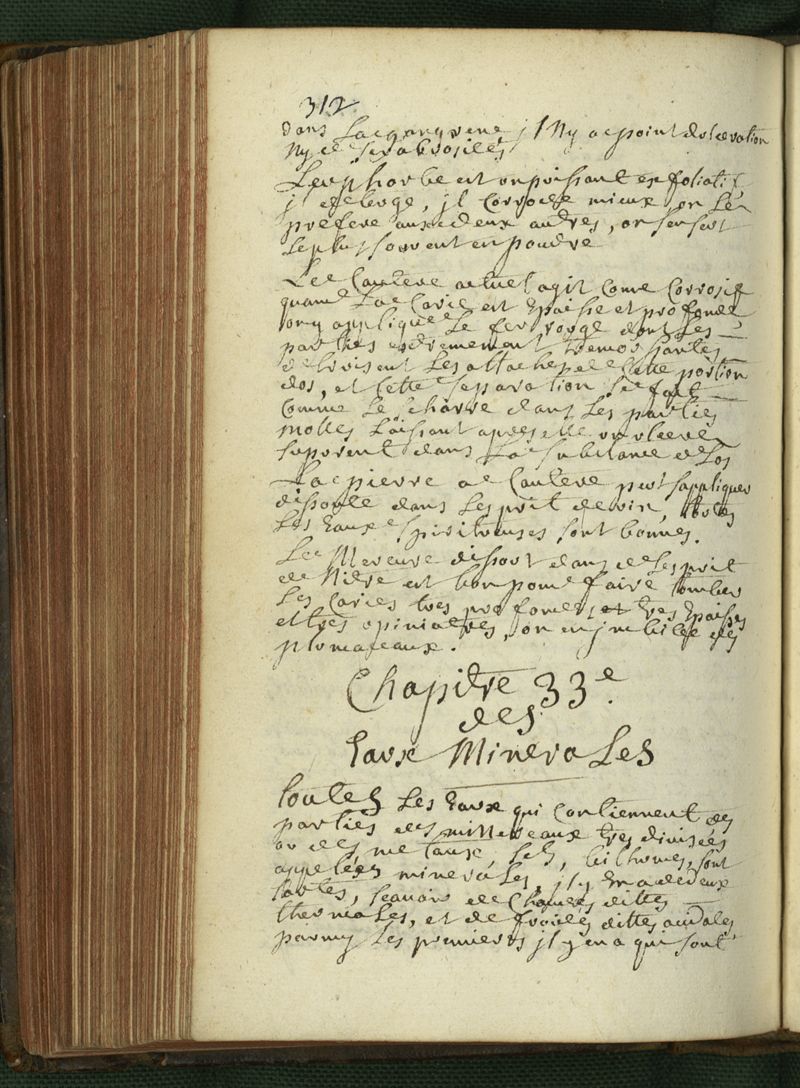 312
dans La gangrene, jl Ny a point dulceration
Ny de
Leuphorbe est un puissant exfoliatif
jl deterge, jl Corrode mieux, on Le
prefere aux deux autres, on sen sert
Le plus souvent en poudre
Le Cautere actuel agit Come Corrosif
quand La Carie est Epaisse et profonde
on y applique Le fer rouge dont Les
parties extremement
detruisent Les attaches de Cette portion
dos, et Cette separation se fait
Comme Lescharre dans Les parties
molles Laissant apres elle un ulcere
dans La substance de Los
La pierre a Cautere peut sappliquer
dissoute dans Lesprit de vin, toutes
Les Eaux spiritueuses sont bonnes.
Le Mercure dissout dans de Lesprit
de Nitre est bon pour faire tomber
Les Caries tres profondes et tres Epaisses
et tres opiniatres, on en jmbibe des
plumaceaux.
Chapitre 33e.
des
Eaux Minerales
Toutes Les Eaux qui Contiennent des
parties des mineraux tres divisées
ou des metaux, sels, bithumes, sont
appelées minerales, jl y En a de deux
sortes, scavoir de Chaudes dittes
thermales, et de froides dittes acidules
parmy Les premieres jl y en a qui sont